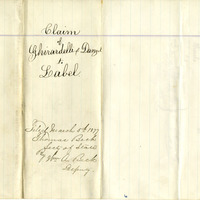 Claim
of
Ghirardelli & Damgt
to
Label.
Filed March 5th 1877
Thomas Beck
Secy of State
By Wm H. Beck
Deputy